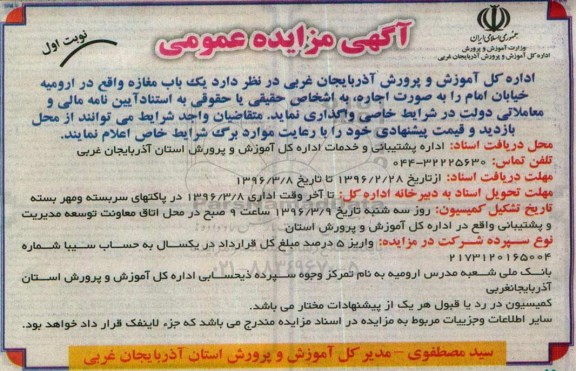 جمهوری اسلامی ایران
وزارت آموزش و پرورش
اداره کل آموزش و پرورش آذربایجان غربی
آگهی مزایده عمومی
نوبت اول
اداره کل آموزش و پرورش آذربایجان غربی در نظر دارد یک باب مغازه واقع در ارومیه
خیابان امام را به صورت اجاره، به اشخاص حقیقی یا حقوقی به استنادآیین نامه مالی و
معاملاتی دولت در شرایط خاصی واگذاری نماید. متقاضیان واجد شرایط می توانند از محل
بازدید و قیمت پیشنهادی خود را با رعایت موارد برگ شرایط خاص اعلام نمایند.
محل دریافت اسناد: اداره پشتیبانی و خدمات اداره کل آموزش و پرورش استان آذربایجان غربی
تلفن تماس: ۳۲۲۲۵۶۳۰-۰۴۴
مهلت دریافت اسناد: ازتاریخ ۱۳۹۶/۲/۲۸ تا تاریخ ۱۳۹۶/۳/۸
مهلت تحویل اسناد به دبیرخانه اداره کل: تا آخر وقت اداری ۱۳۹۶/۳/۸ در پاکتهای سربسته ومهر بسته
تاریخ تشکیل کمیسیون: روز سه شنبه تاریخ ۱۳۹۶/۳/۹ ساعت ۹ صبح در محل اتاق معاونت توسعه مدیریت
و پشتیبانی واقع در اداره کل آموزش و پرورش استان
نوع سپرده شرکت در مزایده: واریز ۵ درصد مبلغ کل قرارداد در یکسال به حساب سیبا شماره
۲۱۷۳۱۲۰۱۶۵۰۰۴
بانک ملی شعبه مدرس ارومیه به نام تمرکز وجوه سپرده ذیحسابی اداره کل آموزش و پرورش استان
آذربایجانغربی
کمیسیون در رد یا قبول هر یک از پیشنهادات مختار می باشد.
سایر اطلاعات وجزییات مربوط به مزایده در اسناد مزایده مندرج می باشد که جزء لاینفک قرار داد خواهد بود.
سید مصطفوی – مدیر کل آموزش و پرورش استان آذربایجان غربی